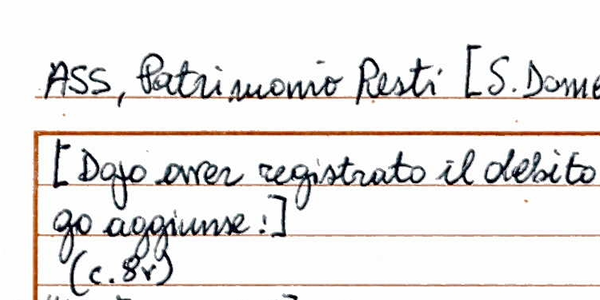 ASS, Patrimonio Resti [S. Dome
[Dopo aver registrato il debito
go aggiunse:]
(c. 8v)